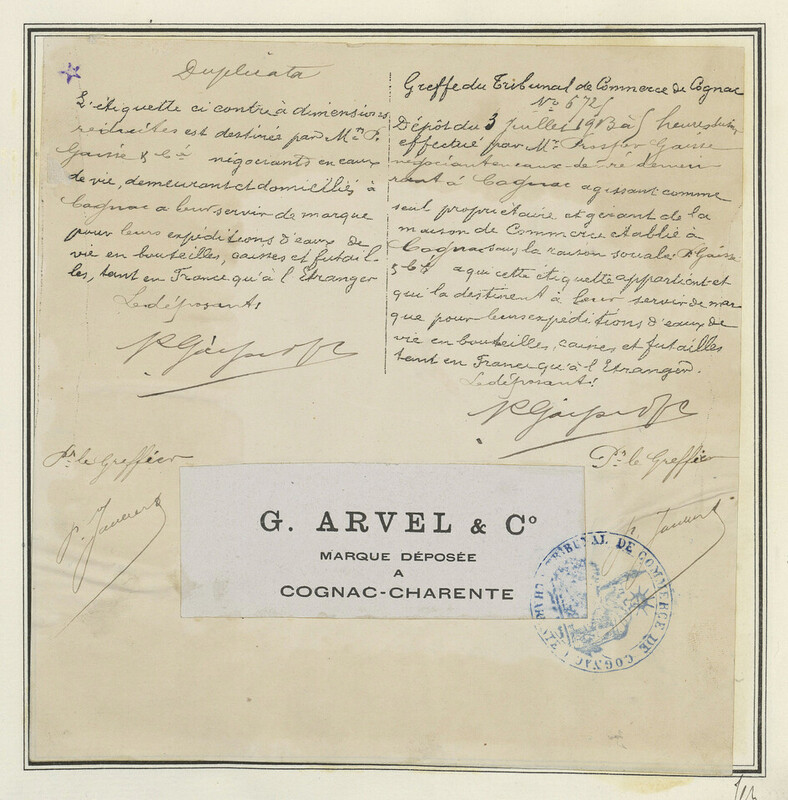 Duplicata
L'étiquette ci contre à dimensions
reduites est destinée par Mr P.
Gasié & Cie négociants en eaux
de vie, demeurant et domiciliés à
Cognac a leur servir de marque
pour leurs expéditions d'eaux de
vie en bouteilles, caisses et futail-
les, tant en France qu'à l'Etranger
Le déposant,
Pr le Greffier
Greffe du Tribunal de Commerce de Cognac
No 572
Dépôt du 3 Juillet 1913 à 5 heures du
effectué par Mr Prosper
négociant en eaux-de-vie demeu
rant à Cognac agissant comme
seul propriétaire et gérant de la
maison de Commerce établie à
Cognac sous la raison sociale P.
& Cie a qui cette étiquette appartient et
qui la destinent à leur servir de mar
que pour leurs expéditions d'eaux de
vie en bouteilles, caisses et futailles
tant en France qu'à l'Etranger.
Le déposant,
Pr le Greffier
G. ARVEL & Co
MARQUE DÉPOSÉE
A
COGNAC-CHARENTE
TRIBUNAL DE COMMERCE DE COGNAC